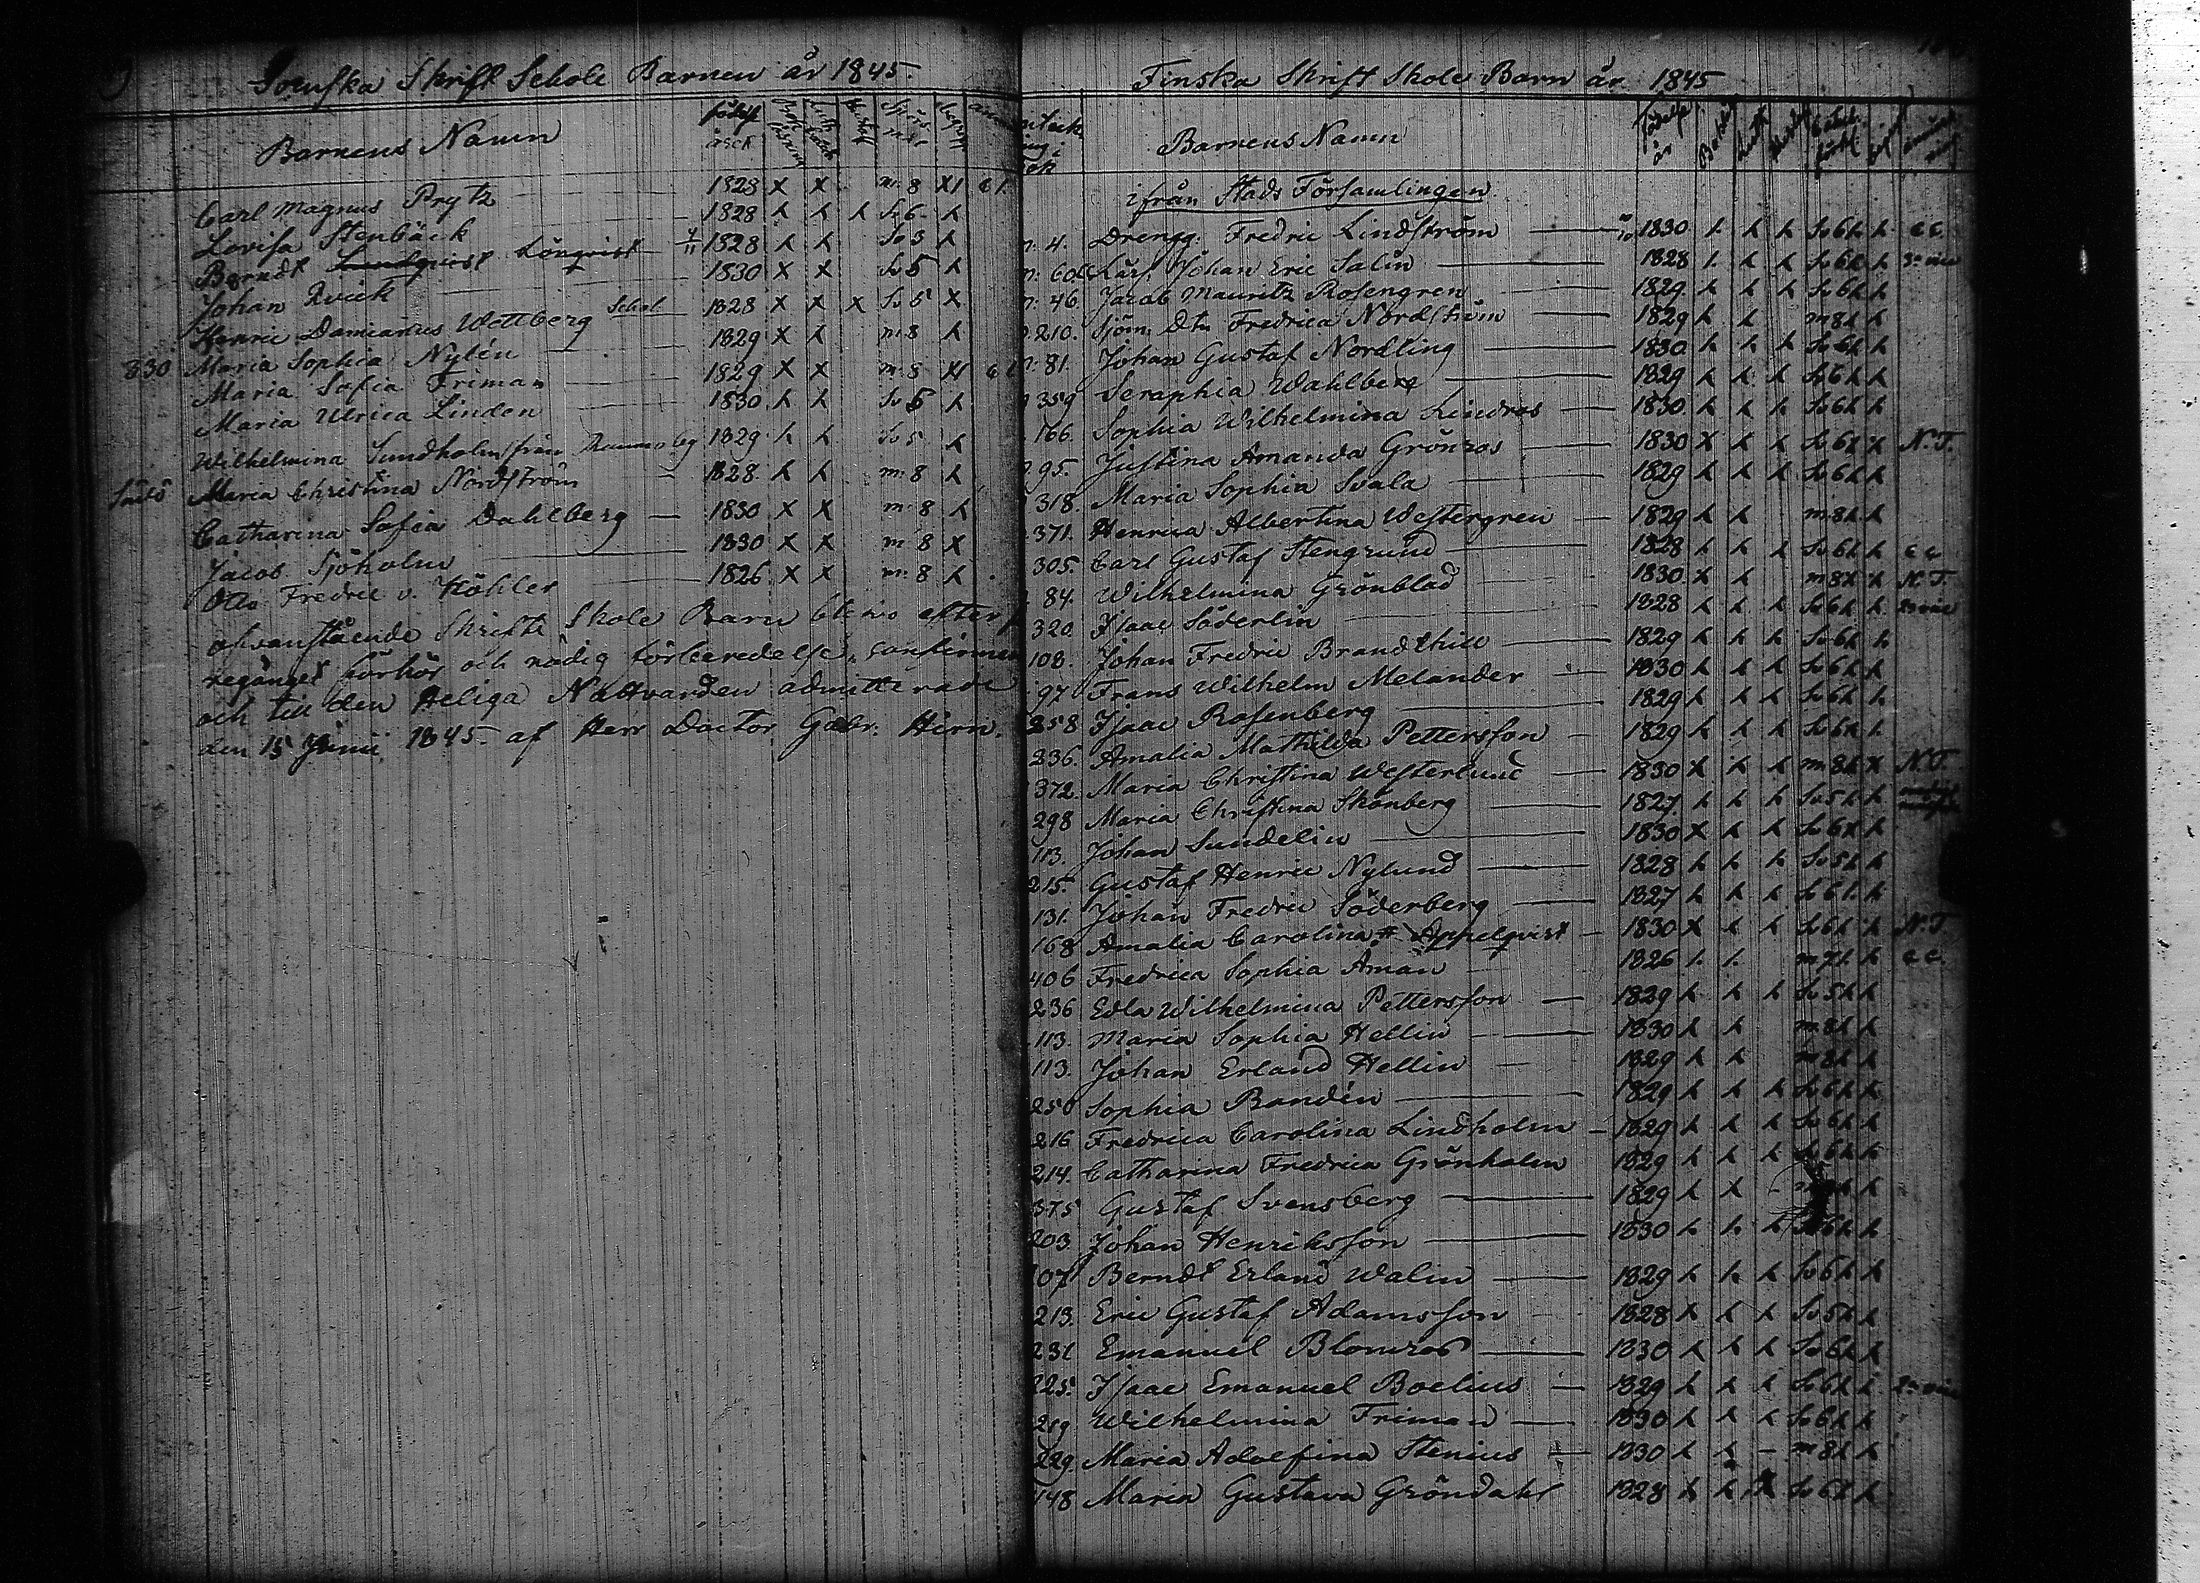 Svenska Skrift Schole Barnen år 1845.
Barnens Namn födelse året
Carl Magnus Prytz 1828 x x m. 8 x1 c 1.
Lovisa Stenbäck 1828 x x x Sv 6 x
Berndt Lundqvist Lönqvist 1828 x x Sv 3 x
Johan Qvick 1830 x x Sv 5 x
Henric Damianus Wettberg Schol 1828 x x x Sv 5 x
830 Maria Sophia Nylén 1829 x x m. 8 x
Maria Sofia Friman 1829 x x m. 8 x1 c 1
Maria Ulrica Linden 1830 x x Sv 5 x
Wilhelmina Sundholm från Raumo 1829 x x Sv 5 x
Maria Christina Nordström 1828 x x m. 8 x
Catharina Sofia Dahlberg 1830 x x m. 8 x
Jacob Sjöholm 1830 x x m 8 x
Otto Fredric v. Köhler 1826 x x m. 8 x
ofvanstående Skrift Skole Barn blevo efter
regånget förhör och nödig förberedelse, confirme
och till den Heliga Nattvarden admitterade
den 15 Junii 1845. af Herr Doctor Gabr. Hirn.
Finska Skrift Skole Barn år 1845
Barnens Namn födelse år
ifrån Stads Församlingen
n. 4. Drengg. Fredric Lindström 1830 x x x Sv 6 x x c c.
n. 60 Lärl. Johan Eric Salin 1828 x x x Sv 6 x x
n. 46 Jacob Mauritz Rosengren 1829 x x x Sv 6 x x
210. Sjöm. Dtr Fredrica Nordström 1829 x x m 8 x x
n. 81. Johan Gustaf Nordling 1830 x x x Sv 6 x x
359 Seraphia Wahlberg 1829 x x x Sv 6 x x
166. Sophia Wilhelmina Lindros 1830 x x x Sv 6 x x
95. Justina Amanda Grönros 1830 x x x Sv 6 x x N. T.
318. Maria Sophia Svala 1829 x x x Sv 6 x x
371. Henrica Albertina Westergren 1829 x x m 8 x x
305. Carl Gustaf Stengrund 1828 x x x Sv 6 x x c c
84. Wilhelmina Grönblad 1830 x x m 8 x x N. T.
320. Isaac Söderlin 1828 x x x Sv 6 x x
108. Johan Fredric Brandthill 1829 x x x Sv 6 x x
97 Frans Wilhelm Melander 1830 x x x Sv 6 x x
258 Isaac Rosenberg 1829 x x x Sv 6 x x
236. Amalia Mathilda Pettersson 1829 x x x Sv 6 x x
372. Maria Christina Westerlund 1830 x x x m 8 x x N T.
298 Maria Christina Skönberg 1827. x x x Sv 5 x x
113. Johan Sundelin 1830 x x x Sv 6 x x
215. Gustaf Henric Nylund 1828 x x x Sv 5 x x
131. Johan Fredric Söderberg 1827 x x x Sv 6 x x
168 Amalia Carolina Appelqvist 1830 x x x Sv 6 x x N. T.
406 Fredrica Sophia Åman 1826 x x m 7 x x c c.
236 Edla Wilhelmina Pettersson 1829 x x x Sv 5 x x
113. Maria Sophia Hellin 1830 x x m 8 x x
113. Johan Erland Hellin 1829 x x m 8 x x
250 Sophia Randén 1829 x x x Sv 6 x x
216 Fredrica Carolina Lindholm 1829 x x x Sv 6 x x
214. Catharina Fredrica Grönholm 1829 x x x Sv 6 x x
375 Gustaf Svensberg 1829 x x
203. Johan Henriksson 1830 x x x Sv 6 x x
107 Berndt Erland Walin 1829 x x x Sv 6 x x
213. Eric Gustaf Adamsson 1828 x x x Sv 5 x x
231 Emanuel Blomros 1830 x x x Sv 6 x x
225. Isaac Emanuel Boelius 1829 x x x Sv 6 x x
219 Wilhelmina Friman 1830 x x x Sv 6 x x
229. Maria Adolfina Stenius 1830 x x - m 8 x x
148 Maria Gustava Gröndahl 1828 x x x Sv 6 x x